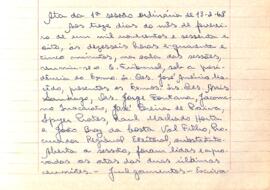 Ata da 1ª sessão ordinária de 13-2-68
Aos treze dias do mês de feverei-
ro de um mil novecentos e sessenta e
oito, às dezesseis horas e quarenta e
cinco minutos, na sala das sessões,
reuniu-se o Tribunal, sob a presi-
dência do Exmo. Sr. Des. José Américo Ma-
cêdo, presentes os Exmos. Srs. Des.
Santiago, Des. Jorge Fontana,
José Pereira de Paiva,
Raul Machado Horta
e João Braz da Costa Val Filho, Pro-
curador Regional Eleitoral, substituto.
Aberta a sessão, foram lidas e apro-
vadas as atas das duas últimas
reuniões. - Julgamentos -